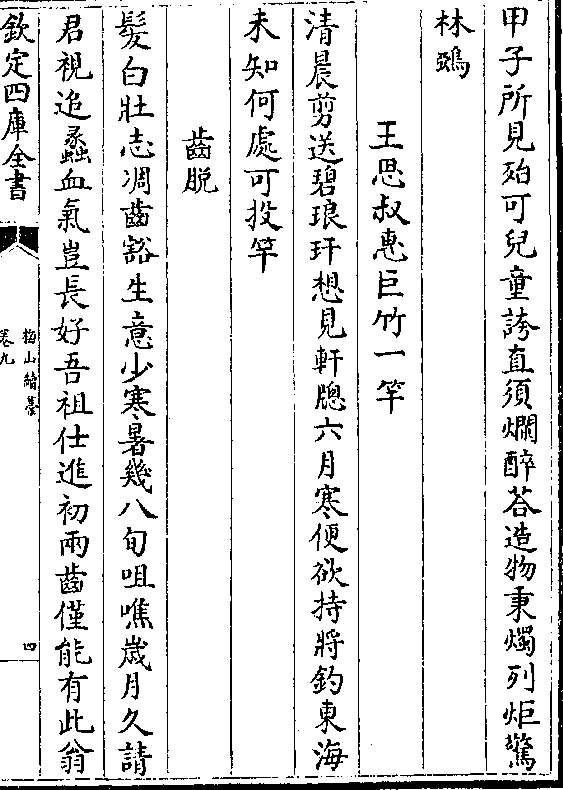 甲子所見殆可兒童誇直須爛醉荅造物秉燭列炬驚
林鵶
王思叔惠巨竹一竿
清晨剪送碧琅玕想見軒牕六月寒便欲持將釣東海
未知何處可投竿
齒脱
髮白壯志凋齒豁生意少寒暑幾八旬咀嚼歲月久請
君視追蠡血氣豈長好吾祖仕進初兩齒僅能有此翁
欽定四庫全書
梅山續藁
卷九
四